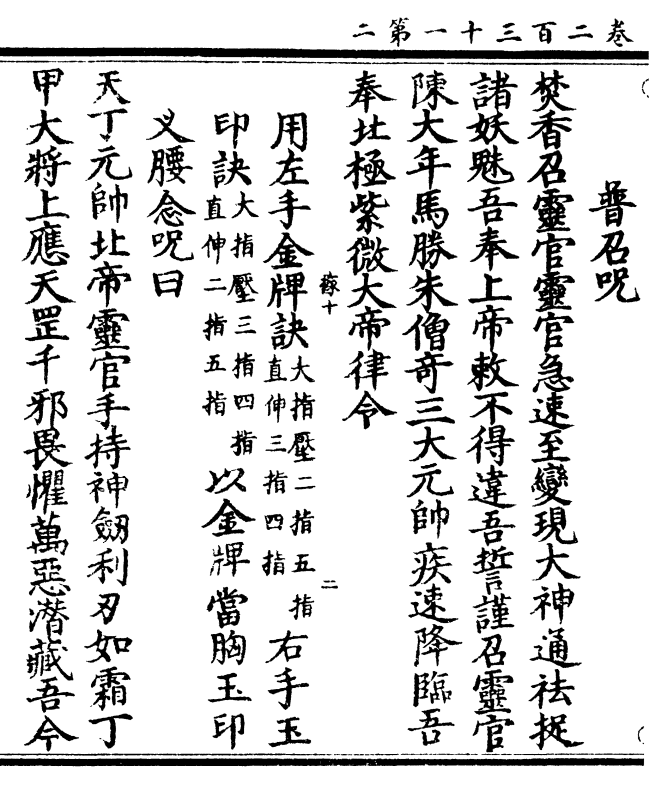 卷二百三十一第二
普召呪
焚香召靈官靈官急速至變現大神通祛捉
諸妖魅吾奉上帝敕不得違吾誓謹召靈官
陳大年馬勝朱僧奇三大元帥疾速降臨吾
奉北極紫微大帝律令
二
用左手金牌訣大指壓二指五指直伸三指四指右手玉
印訣大指壓三指四指直伸二指五指以金牌當胸玉印
叉腰念呪曰
天丁元帥北帝靈官手持神劒利刃如霜丁
甲大將上應天罡千邪畏懼萬惡潛藏吾今